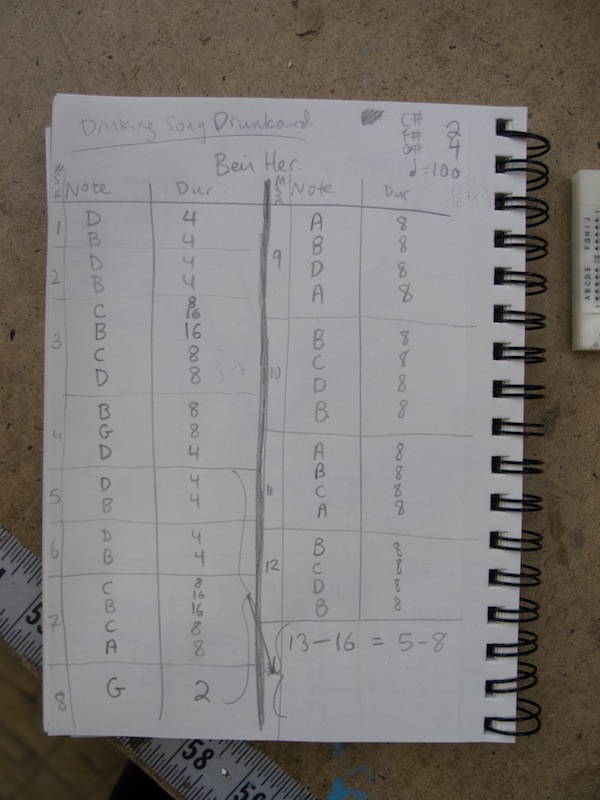 Drinking Song Drunkard
C# 2
F#
G# 4
♩=100
Beir Her.
MSR Note Dur
1 D 4
B 4
2 D 4
B 4
C 8
16
3 B 16
C 8
D 8
B 8
4 G 8
D 4
5 D 4
B 4
6 D 4
B 4
C 8
16
7 B 16
C 8
A 8
8 G 2
MSR Note Dur
A 8
B 8
9 D 8
A 8
B 8
10 C 8
D 8
B 8
A 8
B 8
11 C 8
A 8
B 8
12 C 8
D 8
B 8
13-16 = 5-8
ABCDE FGHIJ
58
59